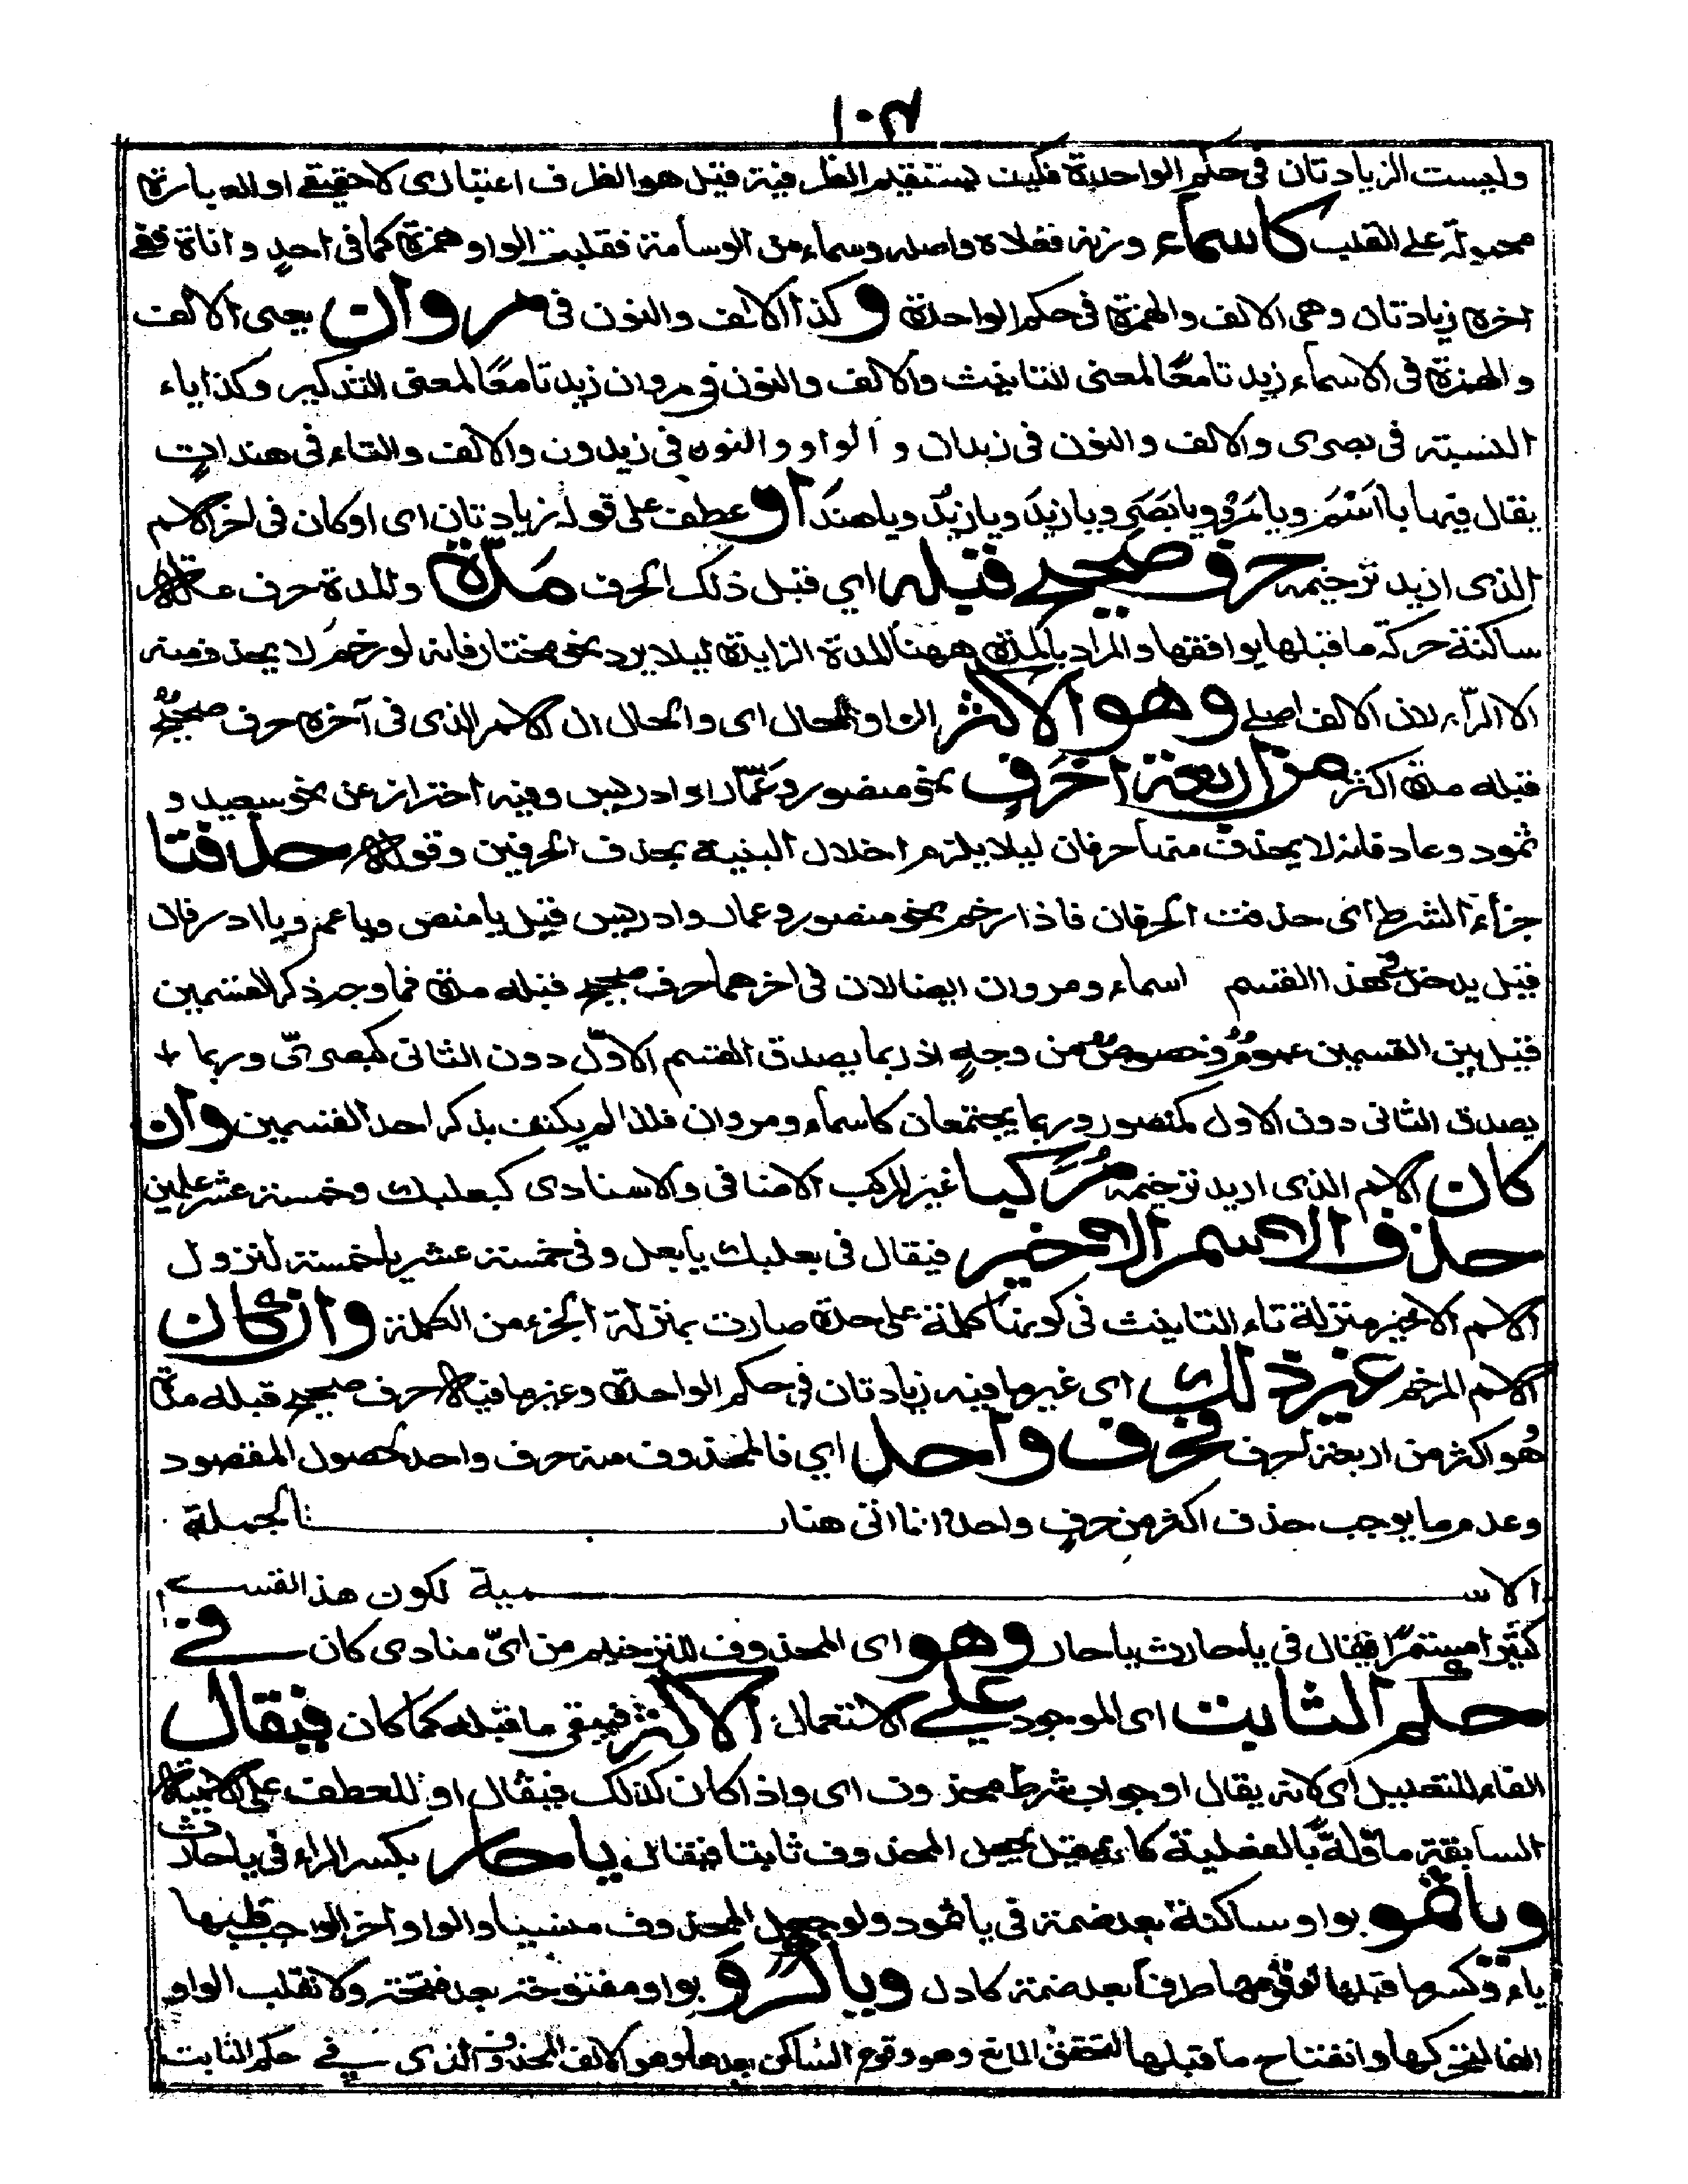 ١٠٣
وليست الزيادتان فى حكم الواحدة فكيف يستقيم الظرفية قيل هو الظرف اعتبارى لا حقيقى او العبارة
محمولة على القلب كاسماء وزنه فعلاء واصله وسماء من الوسامة فقلبت الواو همزة كما فى احد واناة ففى
اخره زيادتان وهى الالف والهمزة فى حكم الواحدة وكذا الالف والنون فى مروان يعنى الالف
والهمزة فى الاسماء زيد تا معًا لمعنى التانيث والالف والنون فى مروان زيد تا معًا لمعنى التذكير وكذا ياء
النسبة فى بصرى والالف والنون فى زيدان و الواو والنون فى زيدون والالف والتاء فى هندات
يقال فيها يا اسم ويا مرو ويا بصر ويا زيد ويا زيد ويا هند او عطف على قوله زيادتان اى او كان فى اخر الاسم
الذى اريد ترخيمه حرف صحيح قبله اي قبل ذلك الحرف مدة والمدة حرف علة
ساكنة حركة ما قبلها يوافقها والمراد بالمدة ههنا المدة الزايدة ليلا يرد نحو مختار فانه لو رخم لا يحذف منه
الا الراء لان الالف اصلي وهو الاكثر الواو للحال اى والحال ان الاسم الذى فى آخره حرف صحيح
قبله مدة اكثر من اربعة احرف نحو منصور وعمّار وادريس وفيه احتراز عن نحو سعيد و
ثمود وعاد فانه لا يحذف منها حرفان ليلا يلزم اخلال البنية بحذف الحرفين وقوله حذفتا
جزاء الشرط اى حذفت الحرفان فاذا رخم نحو منصور وعمار وادريس قيل يا منص ويا عم ويا ادر فان
قيل يدخل فى هذا القسم اسماء ومروان ايضا لان فى اخرهما حرف صحيح قبله مدة فما وجه ذكر القسمين
قيل بين القسمين عموم وخصوص من وجه اذ ربما يصدق القسم الاوّل دون الثانى كبصرىّ وربما
يصدق الثانى دون الاول كمنصور وربما يجتمعان كاسماء ومروان فلذا لم يكتف بذكر احد القسمين وان
كان الاسم الذى اريد ترخيمه مركبا غير المركب الاضافى والاسنادى كبعلبك وخمسة عشر علمين
حذف الاسم الاخير فيقال فى بعلبك يا بعل وفى خمسة عشر يا خمسة لنزول
الاسم الاخير منزلة تاء التانيث فى كونها كلمة على حدة صارت بمنزلة الجزء من الكلمة وان كان
الاسم المرخم غير ذلك اى غير ما فيه زيادتان فى حكم الواحدة وغير ما فيه حرف صحيح قبله مدة
هُو اكثر من اربعة احرف فحرف واحد اي فالمحذوف منه حرف واحد لحصول المقصود
وعدم ما يوجب حذف اكثر من حرف واحد انما اتى هنا بالجملة
الاسمية لكون هذا القسم
كثيرا مستمرا فيقال فى يا حارث يا حار وهو اى المحذوف للترخيم من اىّ منادى كان فى
حكم الثابت اى الموجود على الاستعمال الاكثر فيبقى ما قبله كما كان فيقال
الفاء للتعليل اى لانه يقال او جواب شرط محذوف اى واذا كان كذلك فيقال او للعطف على الاسمية
السابقة مأولة بالفعلية كانه قيل يجعل المحذوف ثابتا فيقال يا حار بكسر الراء فى يا حارث
ويا ثمو بواو ساكنة بعد ضمة فى يا ثمود ولو جعل المحذوف منسيا والواو اخر الوجب قلبها
ياء وكسر ما قبلها لوقوعها طرفا بعد ضمة كادل ويا كرو بواو مفتوحة بعد فتحة ولا تقلب الواو
الفا لتحركها وانفتاح ما قبلها لتحقق المانع وهو وقوع الساكن بعدها وهو الالف المحذوف الذى فى حكم الثابت